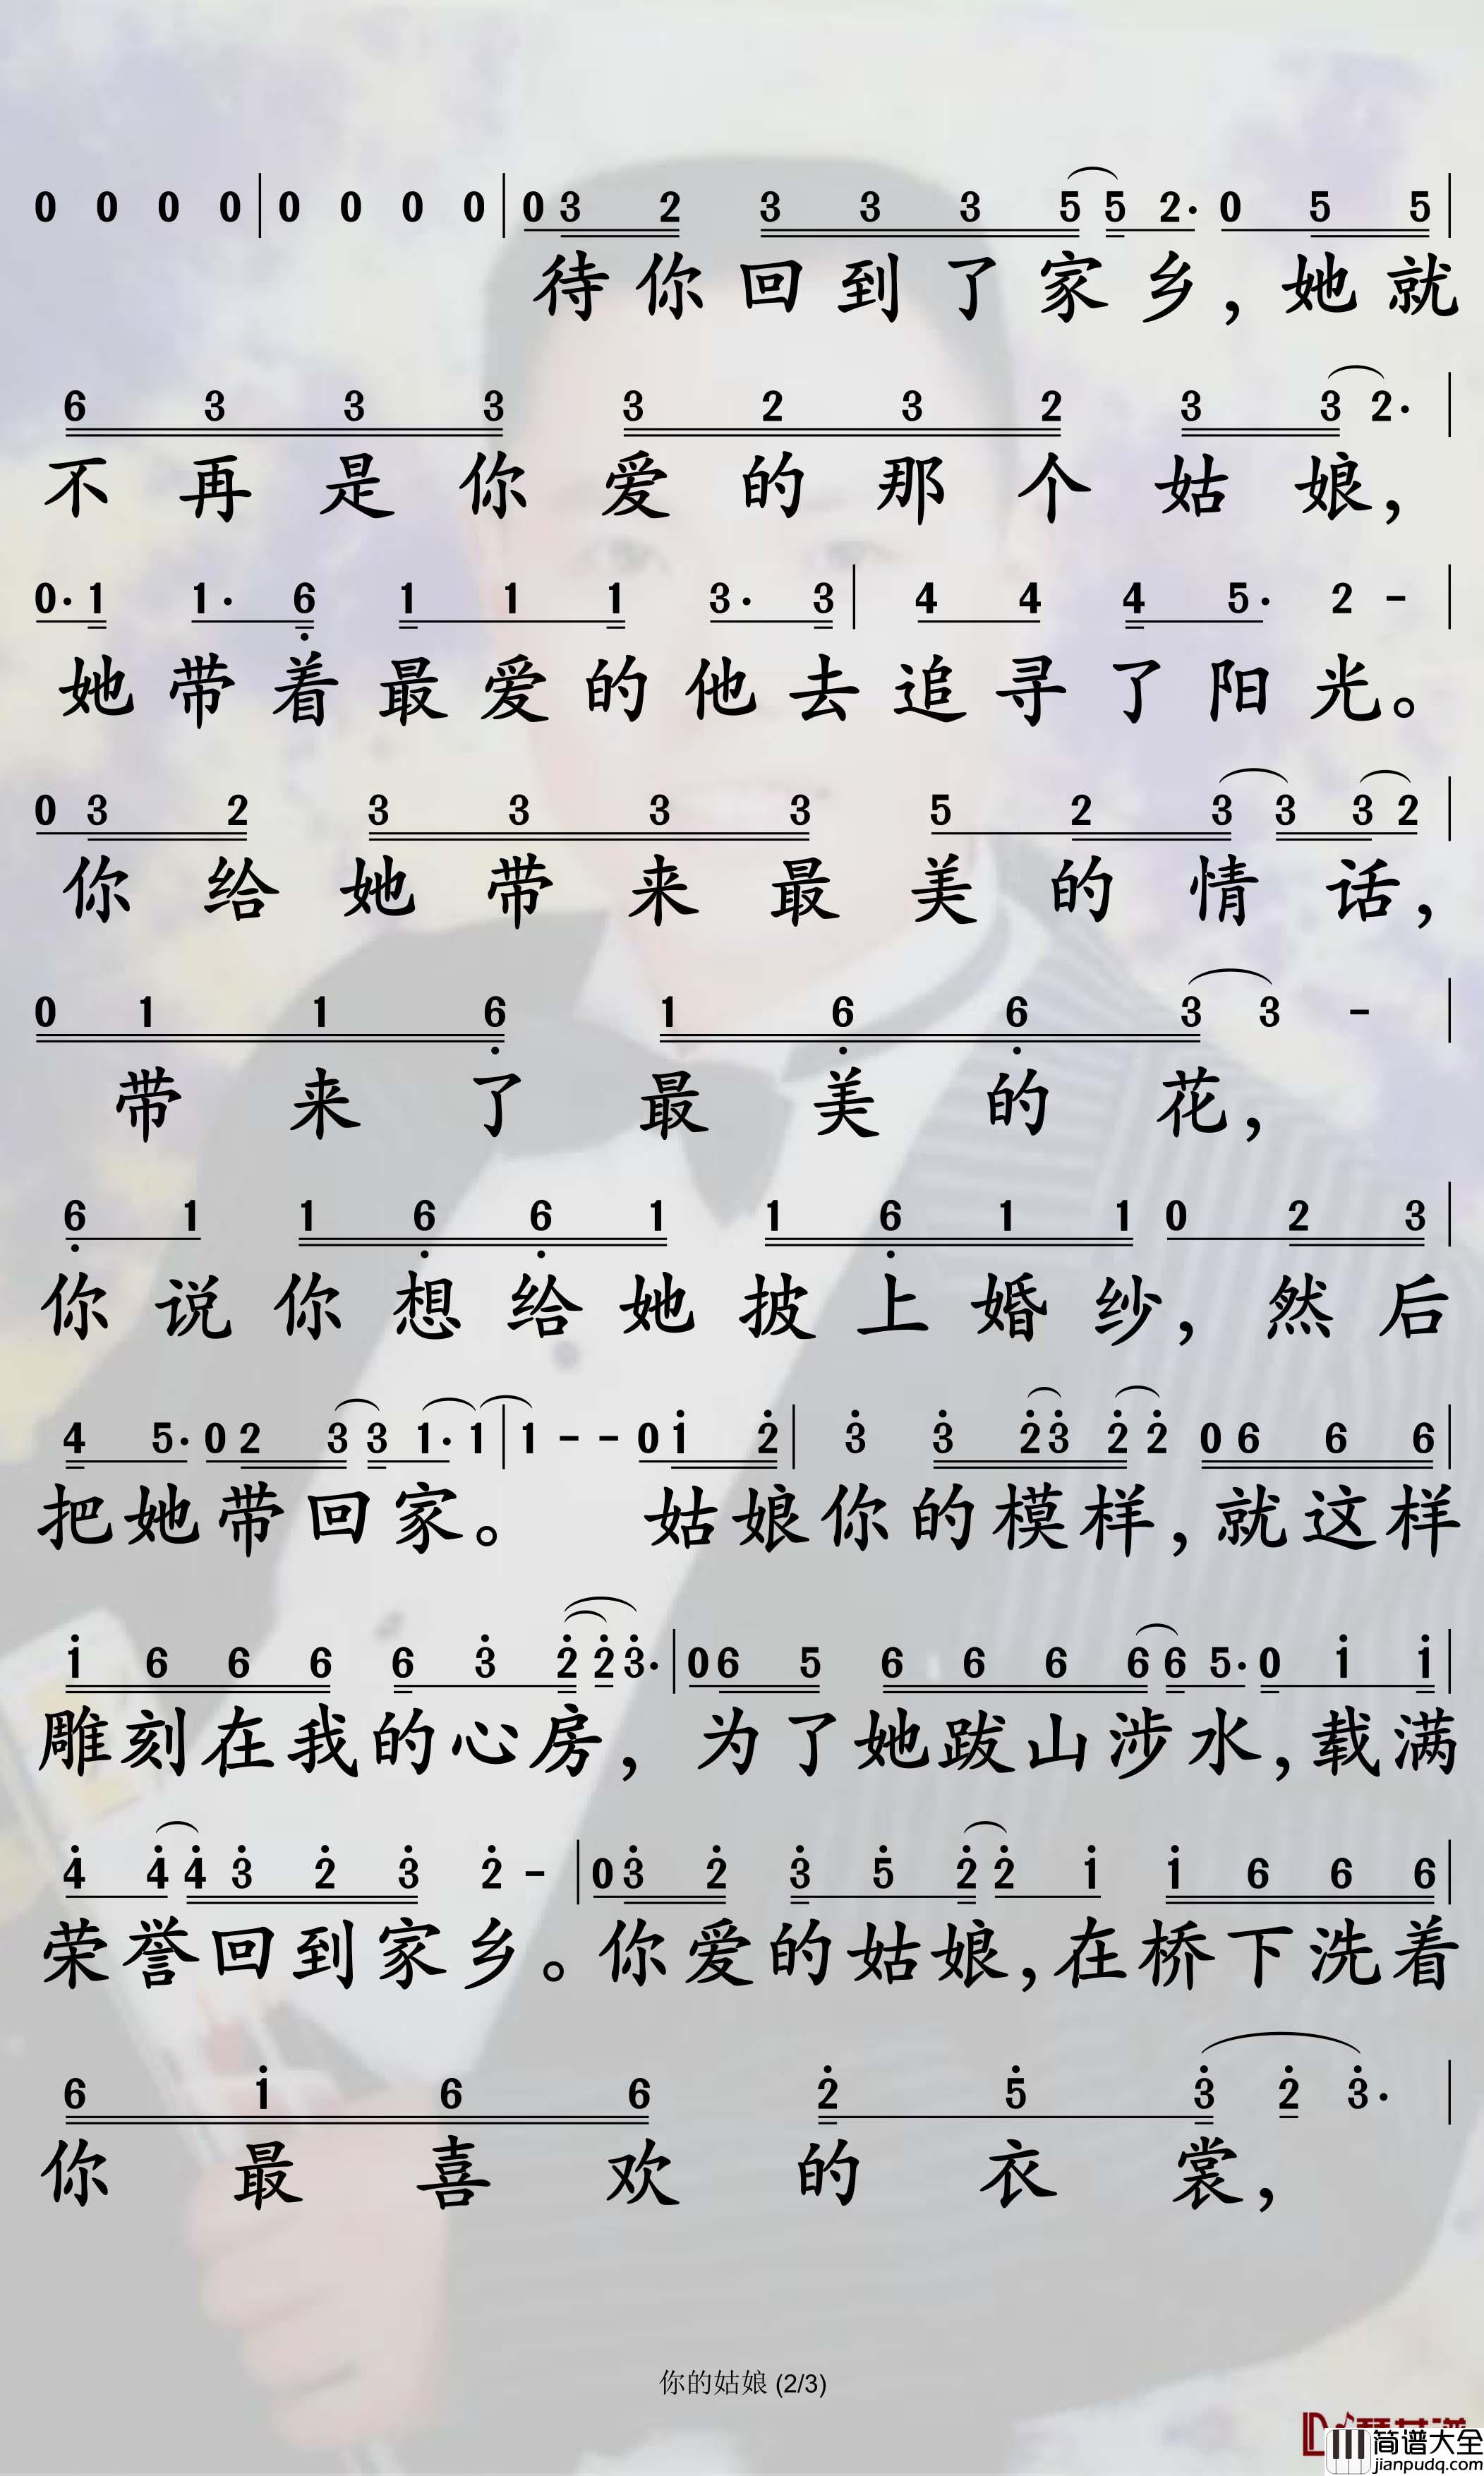 0 0 0 0 | 0 0 0 0 | 0 3 2 3 3 3 5 5 2· 0 5 5 |
待你回到了家乡，她就
6 3 3 3 3 2 3 2 3 3 2· |
不再是你爱的那个姑娘，
0· 1 1· 6̣ 1 1 1 3· 3 | 4 4 4 5· 2 - |
她带着最爱的他去追寻了阳光。
0 3 2 3 3 3 3 5 2 3 3 3 2 |
你给她带来最美的情话，
0 1 1 6̣ 1 6̣ 6̣ 3 3 - |
带来了最美的花，
6̣ 1 1 6̣ 6̣ 1 1 6̣ 1 1 0 2 3 |
你说你想给她披上婚纱，然后
4 5· 0 2 3 3 1· 1 | 1 - - 0 1̇ 2̇ | 3̇ 3̇ 2̇ 3̇ 2̇ 2̇ 0 6 6 6 |
把她带回家。 姑娘你的模样，就这样
1̇ 6 6 6 6 3̇ 2̇ 2̇ 3̇· | 0 6 5 6 6 6 6 6 5· 0 1̇ 1̇ |
雕刻在我的心房，为了她跋山涉水，载满
4̇ 4̇ 4̇ 3̇ 2̇ 3̇ 2̇ - | 0 3̇ 2̇ 3̇ 5̇ 2̇ 2̇ 1̇ 1̇ 6 6 6 |
荣誉回到家乡。你爱的姑娘，在桥下洗着
6 1̇ 6 6 2̇ 5̇ 3̇ 2̇ 3̇· |
你最喜欢的衣裳，
你的姑娘 (2/3)
简谱大全
jianpudq.com